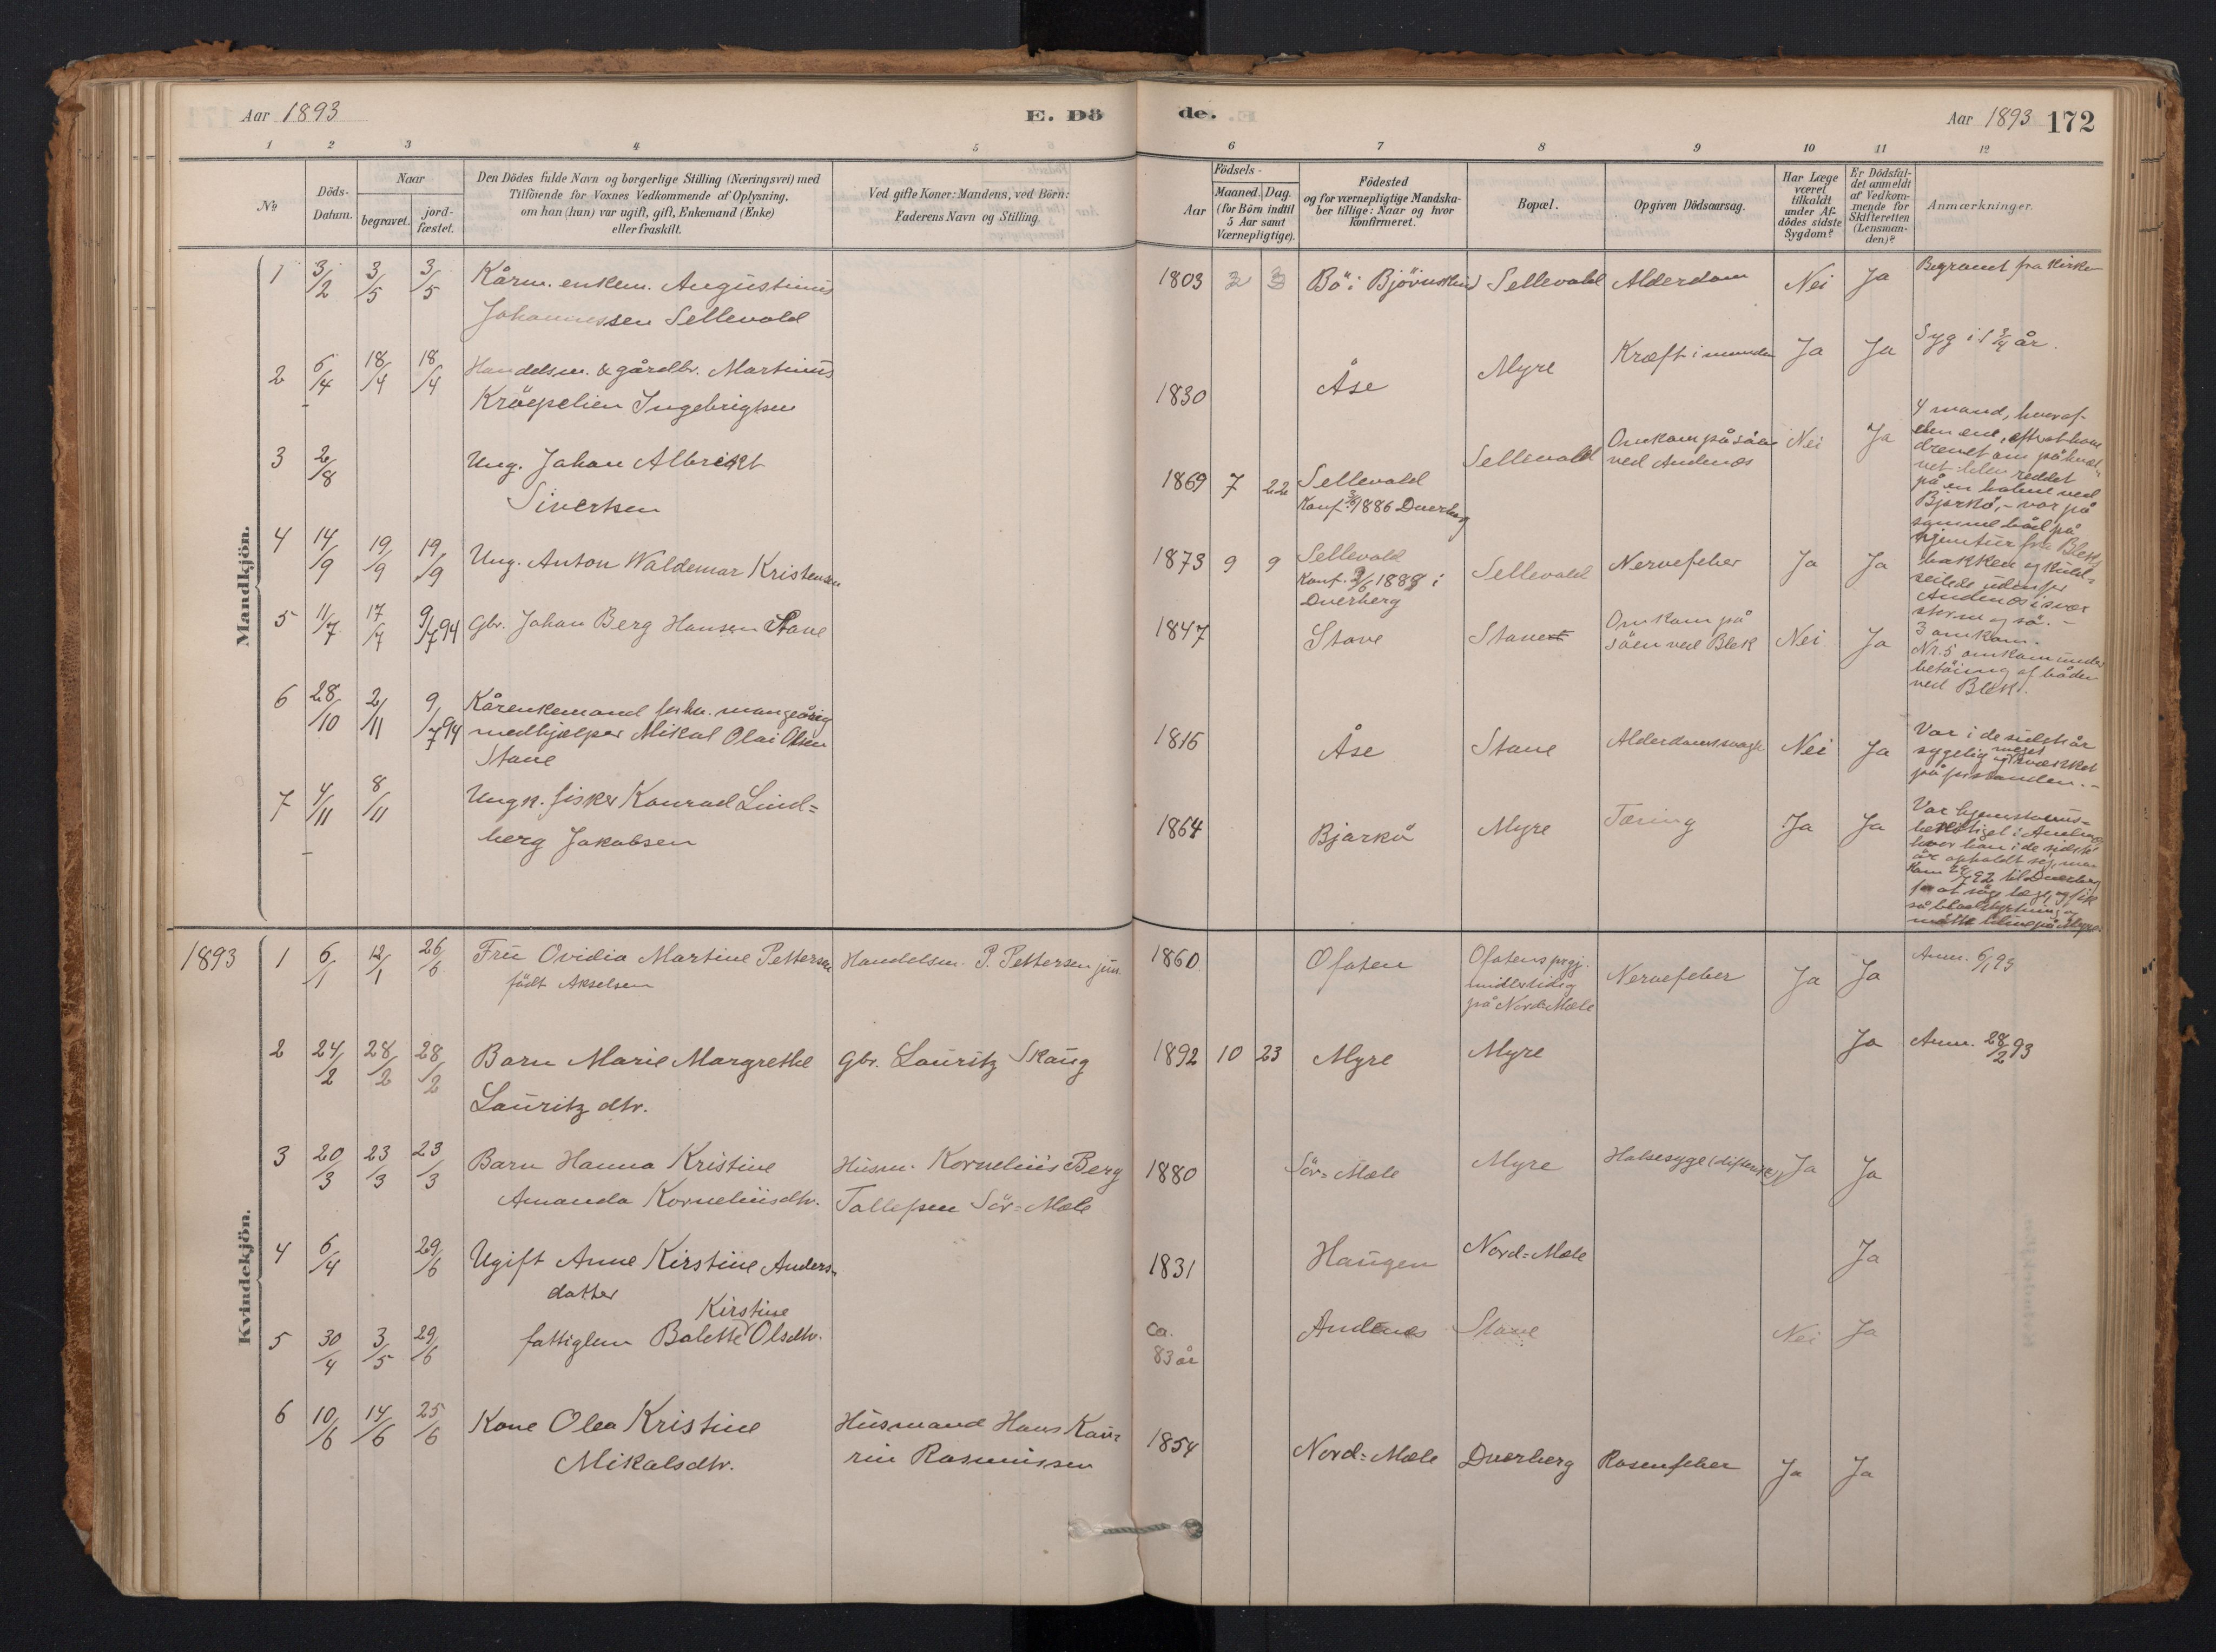 Aar 1893
E. Dö
de.
Aar 1893
172
1 2 3 4 5 6 7 8 9 10 11 12
No
Döds-
Datum.
Naar
begravet.
jord-
fæstet.
Den Dödes fulde Navn og borgerlige Stilling (Næringsvei) med
Tilföiende for Voxnes Vedkommende af Oplysning,
om han (hun) var ugift, gift, Enkemand (Enke)
eller fraskilt.
Ved gifte Koner: Mandens, ved Börn:
Faderens Navn og Stilling.
Aar
Födsels-
Maaned. Dag.
(for Börn indtil
5 Aar samt
Værnepligtige).
Födested
og for værnepligtige Mandska-
ber tillige: Naar og hvor
Konfirmeret.
Bopæl.
Opgiven Dödsaarsag.
Har Læge
været
tilkaldt
under Af-
dödes sidste
Sygdom?
Er Dödsfal-
det anmeldt
af Vedkom-
mende for
Skifteretten
(Lensman-
den)?
Anmærkninger.
Mandkjön.
1 3/2 3/5 3/5 Kårm. enkem. Augustinus
Johannessen Sellevold
1803 Bö i Sellevold Alderdom Nei Ja Begravet fra kirken
2 6/4 18/4 18/4 Handelsm. & gårdbr. Martinus
Kröepelien Ingebrigtsen
1830 Åse Myre Kræft i munden Ja Ja Syg i 1 3/4 år.
3 2/8 Ung. Johan Albrikt
Sivertsen
1869 7 22 Sellevold
Konf. 1886 Dverberg
Sellevold Omkom på söen
ved Andenæs
Nei Ja
4 mand, hvoraf
den ene, efter at have
drevet om på hvæl-
vet blev reddet
på en holme ved
Bjarkö, - var på
samme båd på
hjemtur fra Bleks
bakken og kuld-
seilede udenfor
Andenæs i svær
storm og sö. -
3 omkom.
4 14/9 19/9 19/9 Ung. Anton Waldemar Kristensen
1873 9 9 Sellevold
Konf. 2/6 1888 i
Dverberg
Sellevold Nervefeber Ja Ja
5 11/7 17/7 9/7 94 Gbr. Johan Berg Hansen Stave
1847 Stave Stave Omkom på
söen ved Blek Nei Ja
Nr. 5 omkom under
betöining af båden
ved Blek.
6 28/10 2/11 9/7 94 Kårenkemand forhv. mangeårig
medhjælper Mikal Olai Olsen
Stave
1815 Åse Stave Alderdomssvaghed Nei Ja
Var i de sidste år
sygelig og meget svækket
på forstanden. -
7 4/11 8/11 Ungk. fisker Konrad Lind=
berg Jakobsen
1864 Bjarkö Myre Tæring Ja Ja
Var hjemstavns-
berettiget i
hvor han i de sidste
år opholdt sig, men
kom 92 til Dverberg
for at söge læge, og fik
så blodstyrtning og
måtte blive på Myre.
Kvindekjön.
1893 1 6/1 12/1 26/6 Fru Ovidia Martine Pettersen
födt Akselsen
Handelsm. P. Pettersen jun.
1860 Ofoten Ofotens prgj.
midlertidig
på Nord-Mæle
Nervefeber Ja Ja Anm. 6/1 93
2 24/2 28/2 28/2 Barn Marie Margrethe
Lauritz dtr.
Gbr. Lauritz Skaug
1892 10 23 Myre Myre Ja Anm. 28/2 93
3 20/3 23/3 23/3 Barn Hanna Kristine
Amanda Korneliusdtr.
Husm. Kornelius Berg
Tollefsen Sör=Mæle
1880 Sör=Mæle Myre Halsesyge (difterit) Ja Ja
4 6/4 29/6 Ugift Anne Kirstine Anders-
datter
1831 Haugen Nord=Mæle Ja
5 30/4 3/5 29/6 fattiglem Bolette Kirstine Olsdtr.
Ca.
83 år
Andenæs Stave Nei Ja
6 10/6 14/6 25/6 Kone Olea Kristine
Mikalsdtr.
Husmand Hans Kau-
rin Rasmussen
1854 Nord=Mæle Dverberg Rosenfeber Ja Ja